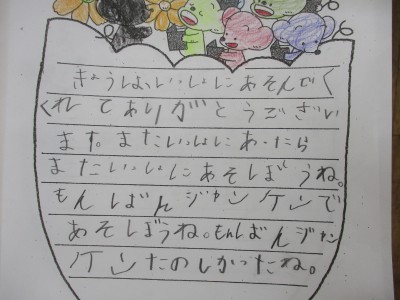 きょうは、いっしょにあそんでく
くれてありがとうござい
ます。またいっしょにあったら
またいっしょにあそぼうね。
もんばんジャンケンで
あそぼうね。もんばんジャン
ケンたのしかったね。